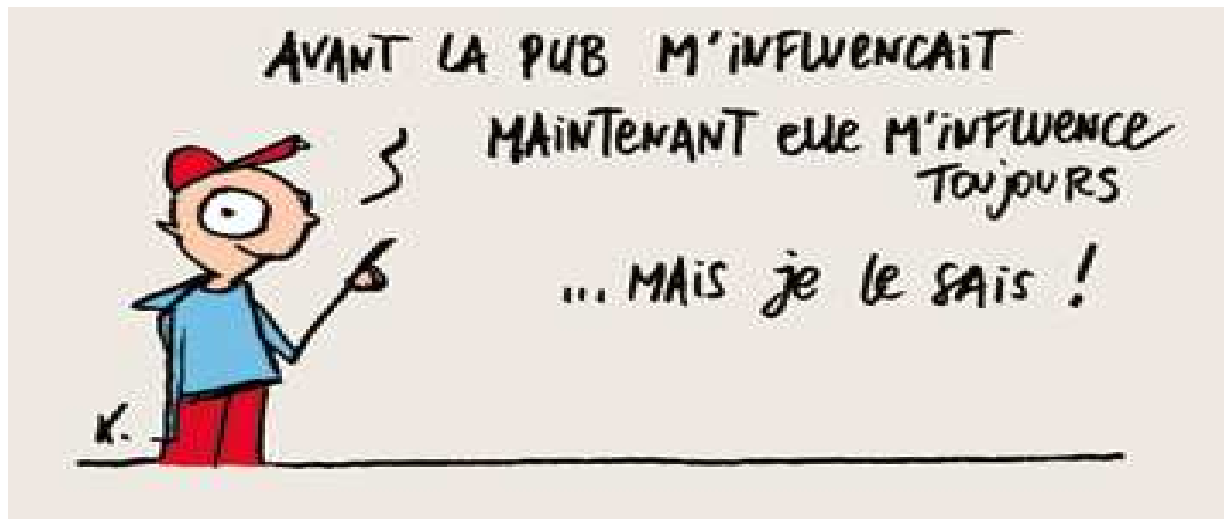 AVANT LA PUB M'iNFLUENCAiT
MAiNTENANT elle M'iNFLUENCE
TOUjOURS
... MAiS je le SAiS !
K.